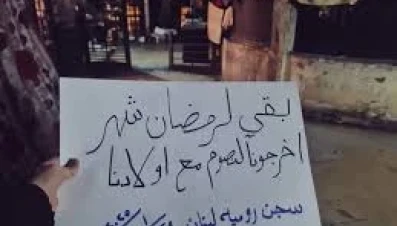 بقي لرمضان شهر
اخرجونا لنصوم مع اولادنا
سجن رومية لبنان